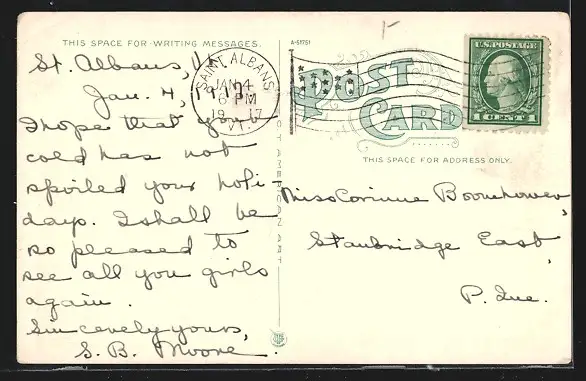 THIS SPACE FOR WRITING MESSAGES.
A-51751
St. Albans, Vt.
Jan. 4, 1917.
I hope that your
cold has not
spoiled your holi-
days. I shall be
so pleased to
see all you girls
again.
Sincerely yours,
S. B. Moore.
SAINT ALBANS
JAN 4
6 PM
19 17
VT.
POST
CARD
U.S. POSTAGE
1 CENT 1
THIS SPACE FOR ADDRESS ONLY.
Miss Corinne Boomhower,
Stanbridge East,
P. Que.